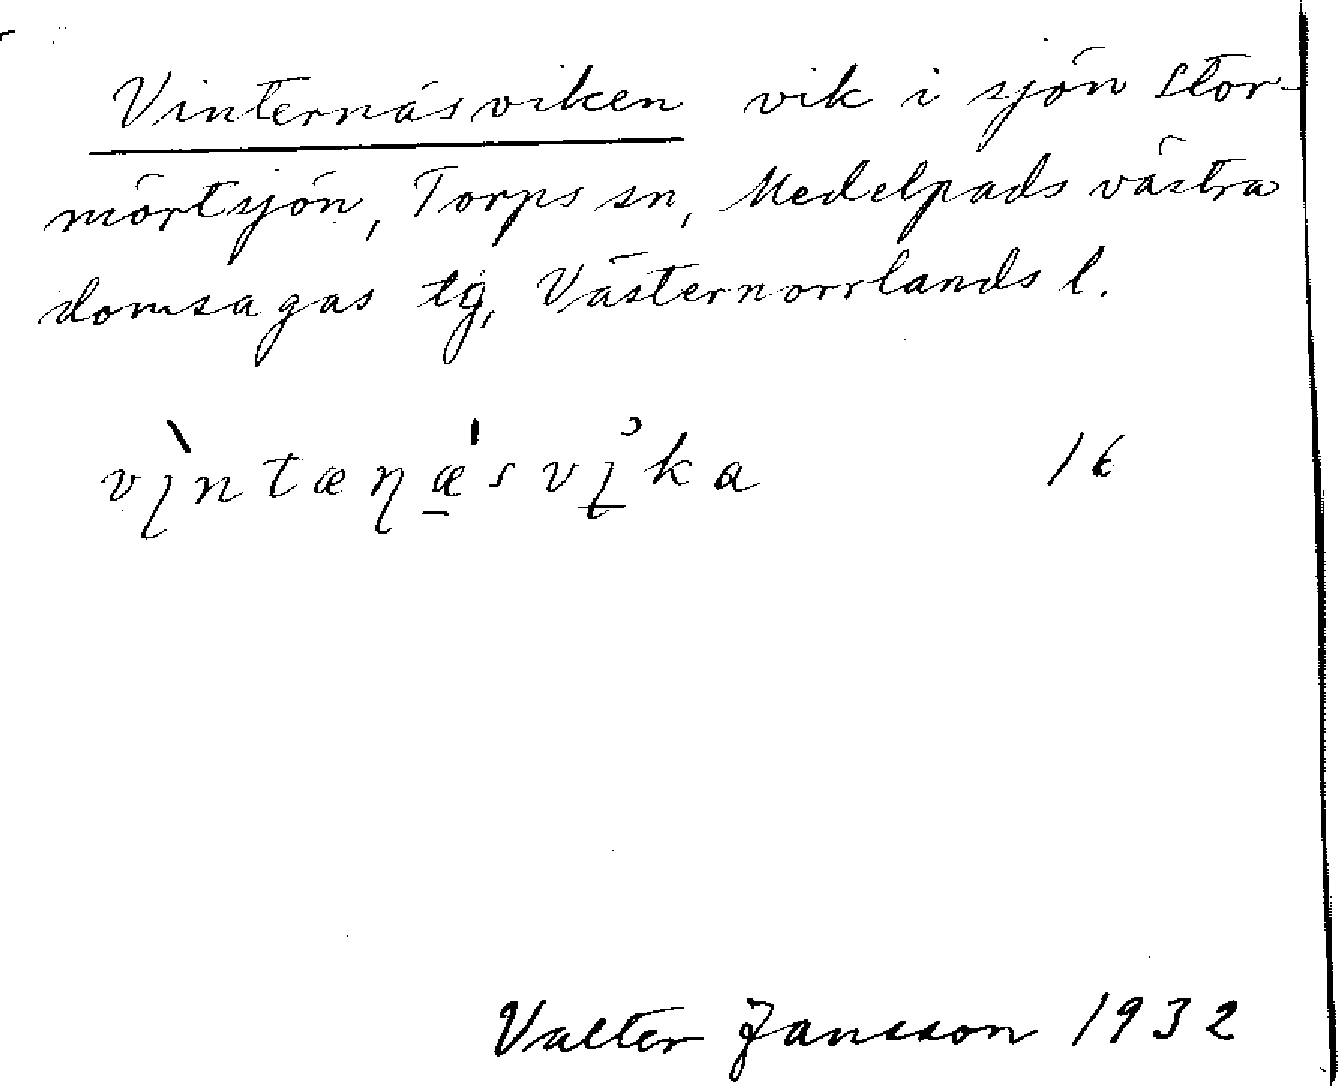 Vinternäsviken vik i sjön Stor-
mörtsjön, Torps sn, Medelpads västra
domsagas tg, Västernorrlands l.
vìntæɳǽ̠svi̠ka 16
Valter Jansson 1932